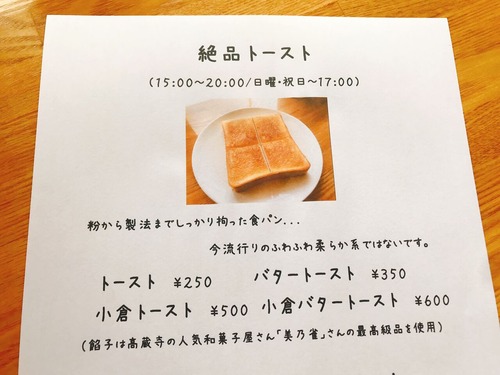 絶品トースト
(15:00～20:00/日曜・祝日～17:00)
粉から製法までしっかり拘った食パン...
今流行りのふわふわ柔らか系ではないです。
トースト ¥250 バタートースト ¥350
小倉トースト ¥500 小倉バタートースト ¥600
(餡子は高蔵寺の人気和菓子屋さん「美乃雀」さんの最高級品を使用)